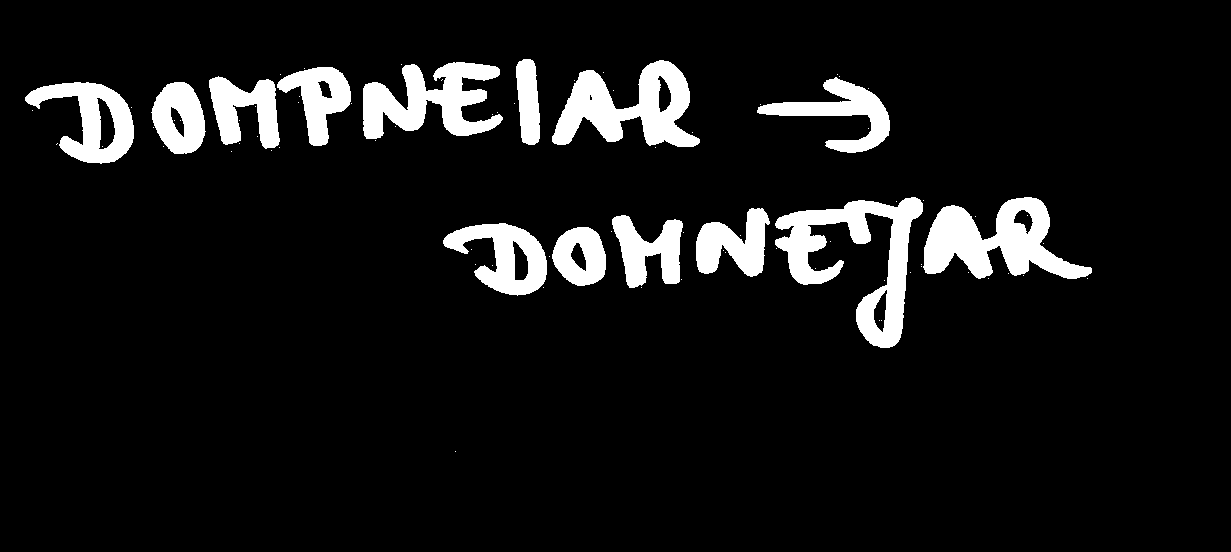 DOMPNEIAR →
DOMNEJAR